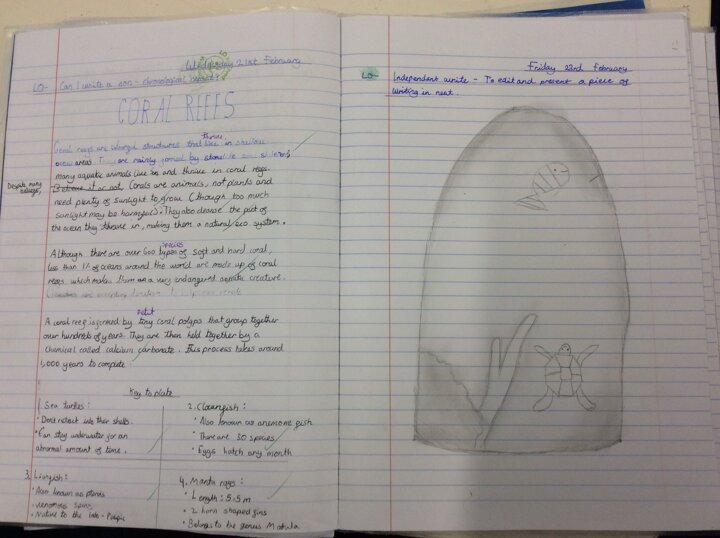 Wednesday 21st February
LO- Can I write a non-chronological report?
CORAL REEFS
thrive
Coral reefs are structures that live in shallow
ocean areas. They are mainly formed by
many aquatic animals live on and thrive in coral reefs.
Despite many
Believe it or not, Corals are animals, not plants and
need plenty of sunlight to grow (though too much
sunlight may be harmful). They also the part of
the ocean they thrive in, making them a natural eco system.
species
Although there are over 600 types of soft and hard coral,
less than 1% of oceans around the world are made up of coral
reefs. which makes them a very endangered aquatic creature.
A coral reef is formed by tiny coral polyps that group together
over hundreds of years. They are then held together by a
chemical called calcium carbonate. This process takes around
1,000 years to complete.
Key to plate
1. Sea turtles:
• Don't retract into their shells.
• Can stay underwater for an
abnormal amount of time.
2. Clownfish:
• Also known as anemone fish
• There are 30 species
• Eggs hatch any month
3. Lionfish:
• Also known as pterois
• venomous spins
• Native to the Indo-Pacific
4. Manta rays:
• Length: 5.5m
• 2 horn shaped fins
• Belongs to the genus
Friday 23rd February
LO- Independent write - To edit and present a piece of
writing in neat.